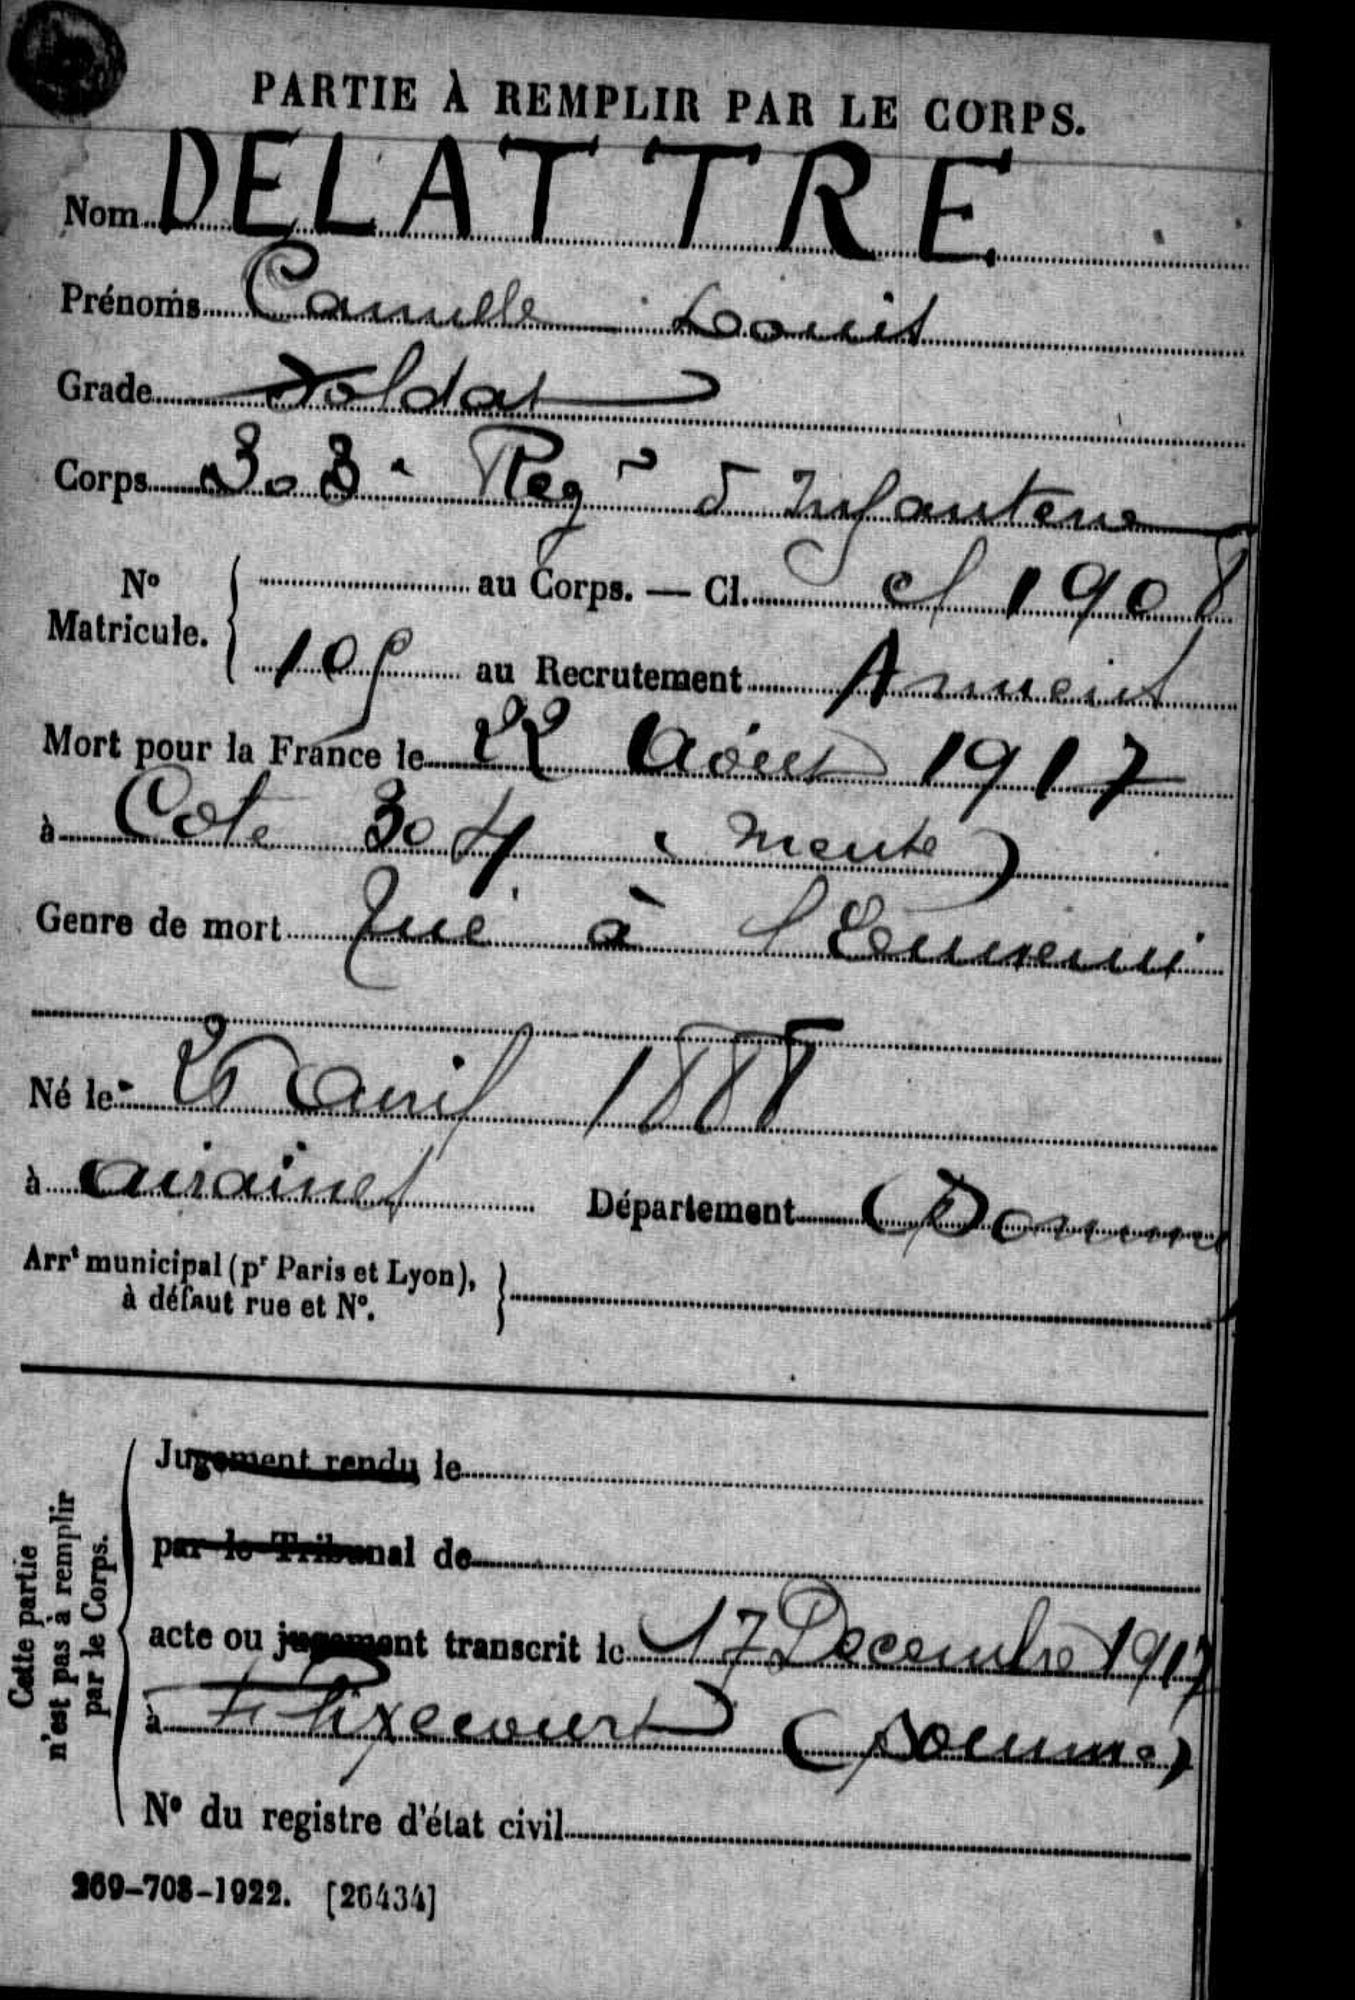 PARTIE À REMPLIR PAR LE CORPS.
Nom DELATTRE
Prénoms Camille Louis
Grade Soldat
Corps 303e Regt d'Infanterie
N° Matricule. { au Corps. — Cl. cl 1908
au Recrutement Amiens
Mort pour la France le 22 Août 1917
à Cote 304 (Meuse)
Genre de mort Tué à l'Ennemi
Né le avril 1888
à airaines Département (Somme
Arrt municipal (pr Paris et Lyon),
à défaut rue et N°.
Cette partie
n'est pas à remplir
par le Corps.
Jugement rendu le
par le Tribunal de
acte ou jugement transcrit le 17 Decembre 1917
à Flixecourt (Somme)
N° du registre d'état civil
269-708-1922. [26434]